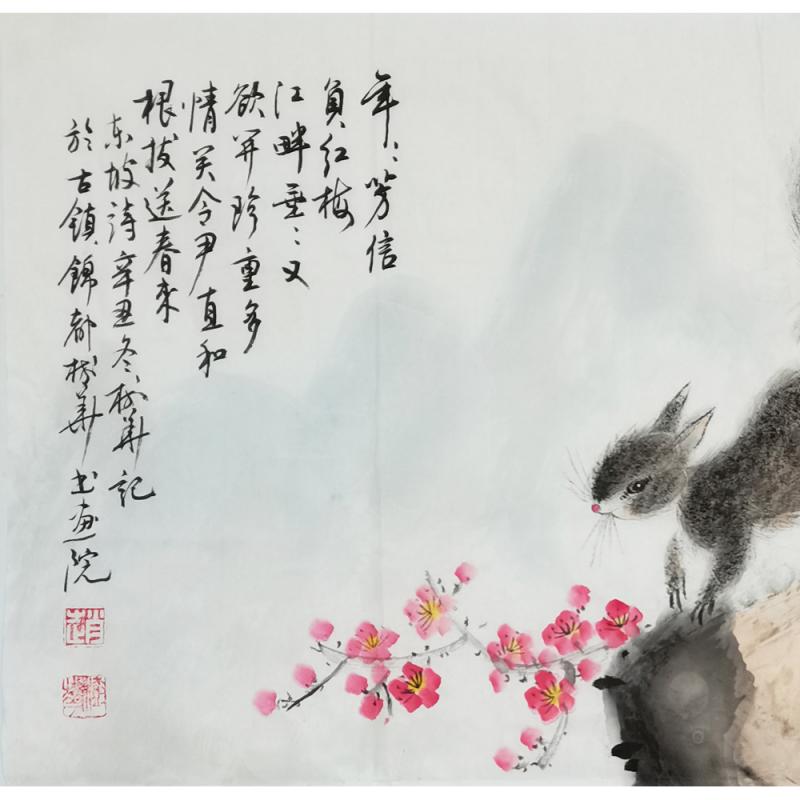 年〻芳信
負红梅
江畔垂〻又
欲开珍重多
情关令尹直和
根拔送春来
东坡詩辛丑冬树華記
於古鎮錦都树華书画院